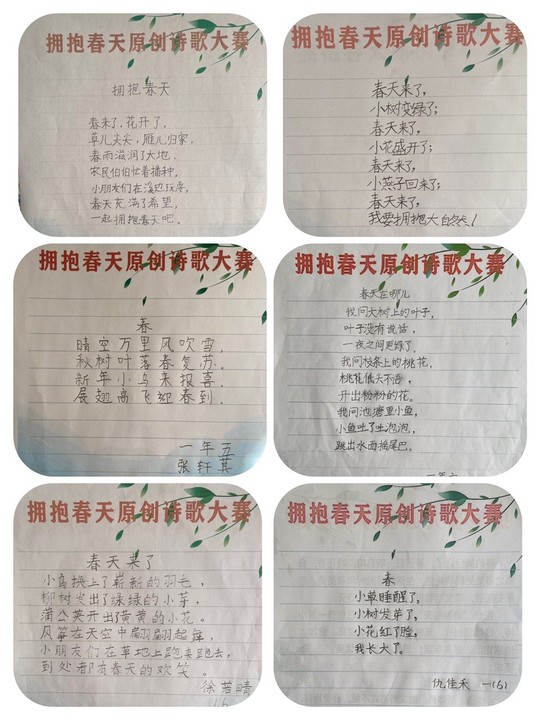 拥抱春天原创诗歌大赛
拥抱春天
春来了，花开了，
草儿尖尖，雁儿归家，
春雨滋润了大地，
农民伯伯忙着播种，
小朋友们在溪边玩耍，
春天充满了希望，
一起拥抱春天吧。
拥抱春天原创诗歌大赛
春天来了，
小树变绿了；
春天来了，
小花盛开了；
春天来了，
小燕子回来了；
春天来了，
我要拥抱大自然！
拥抱春天原创诗歌大赛
春
晴空万里风吹雪，
秋树叶落春复苏。
新年小鸟来报喜，
展翅高飞迎春到。
一年五
张轩萁
拥抱春天原创诗歌大赛
春天在哪儿
我问大树上的叶子，
叶子没有说话，
一夜之间更绿了。
我问枝条上的桃花，
桃花低头不语，
开出粉粉的花。
我问池塘里小鱼，
小鱼吐了吐泡泡，
跳出水面摇尾巴。
拥抱春天原创诗歌大赛
春天来了
小鸟换上了崭新的羽毛，
柳树发出了绿绿的小芽，
蒲公英开出了黄黄的小花。
风筝在天空中翩翩起舞，
小朋友们在草地上跑来跑去，
到处都有春天的欢笑。
徐若晴
拥抱春天原创诗歌大赛
春
小草睡醒了，
小树发芽了，
小花红了脸，
我长大了。
仇佳禾 一(6)